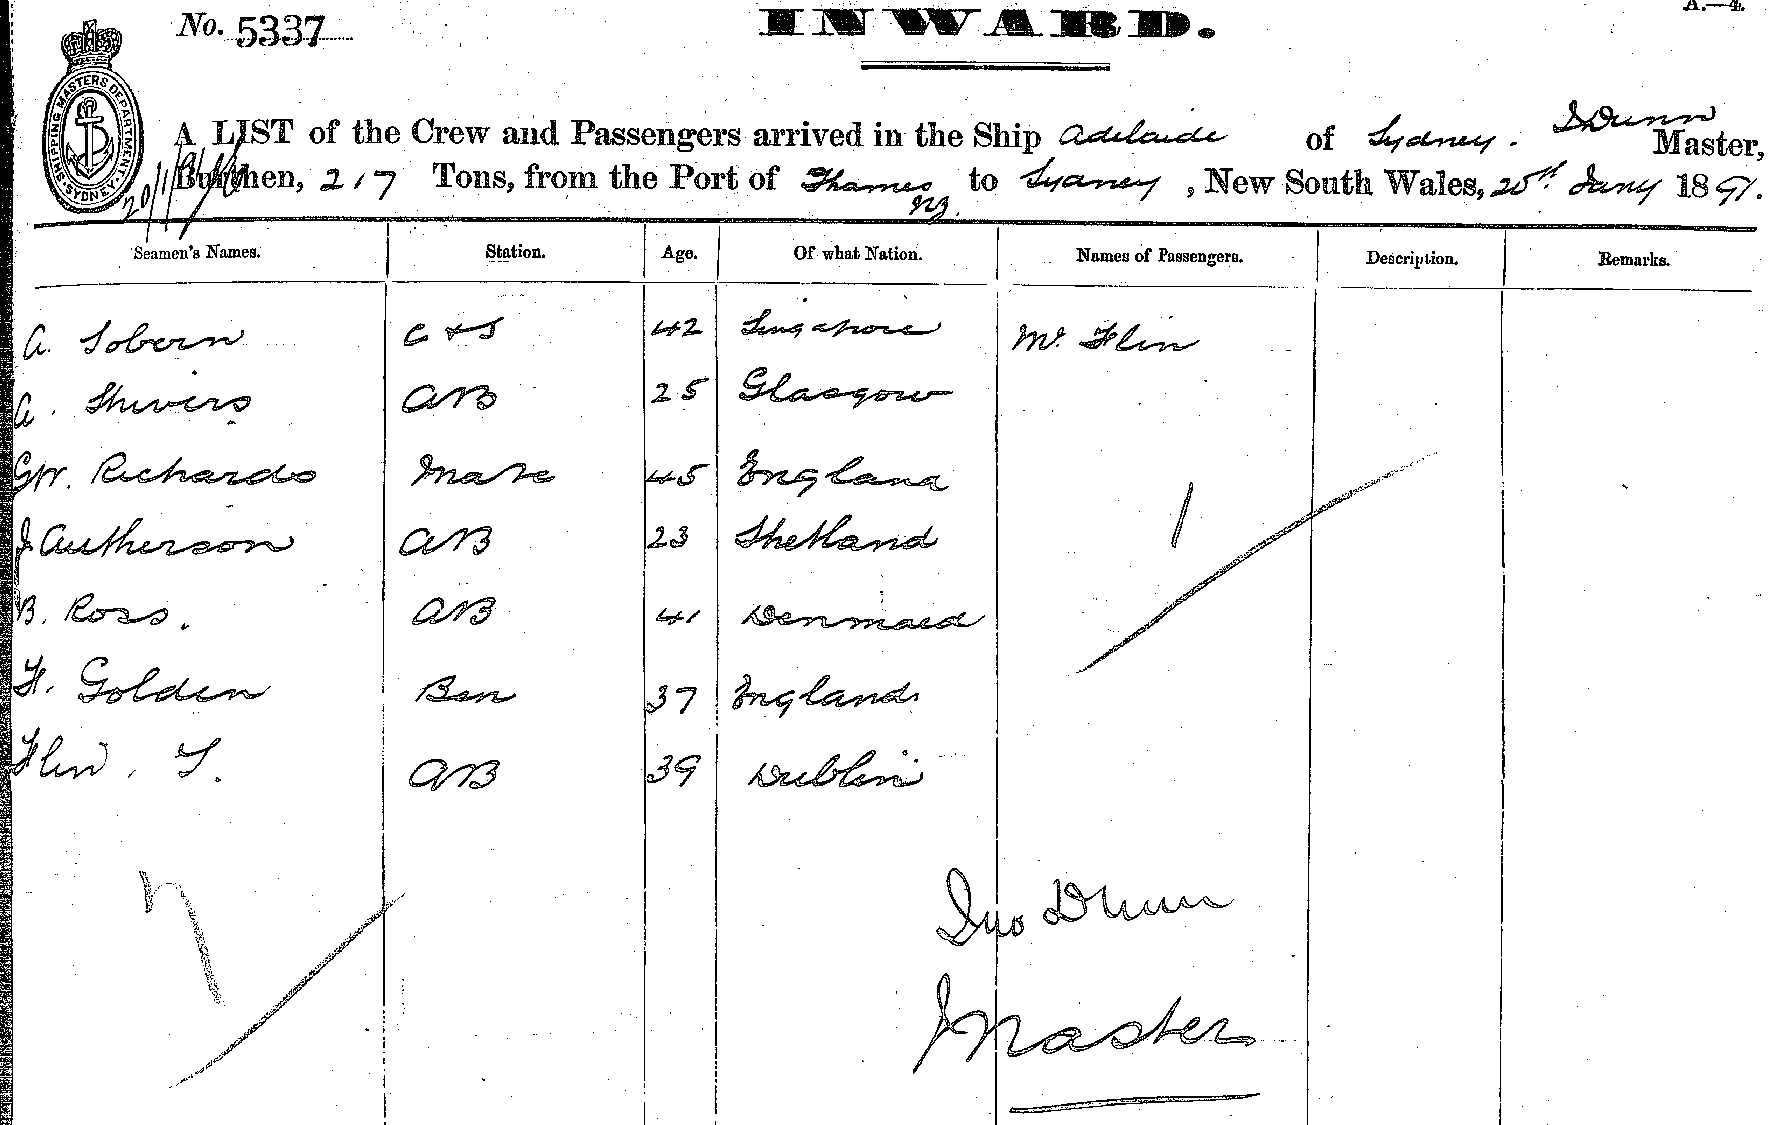 No. 5337
INWARD.
A.—4.
SHIPPING MASTERS DEPARTMENT SYDNEY
J Dunn
A LIST of the Crew and Passengers arrived in the Ship Adelaide of Sydney. Master,
Burthen, 217 Tons, from the Port of Thames NZ. to Sydney, New South Wales, 20th Jany 1891.
Seamen's Names. Station. Age. Of what Nation. Names of Passengers. Description. Remarks.
A. Sobern C & S 42 Singapore Mr. Flin
A. Shivers AB 25 Glasgow
GW. Richards Mate 45 England
J Autherson AB 23 Shetland
B. Ross. AB 41
F. Golden 37 England
Flin. T. AB 39 Dublin
1
7
Jno Dunn
Master